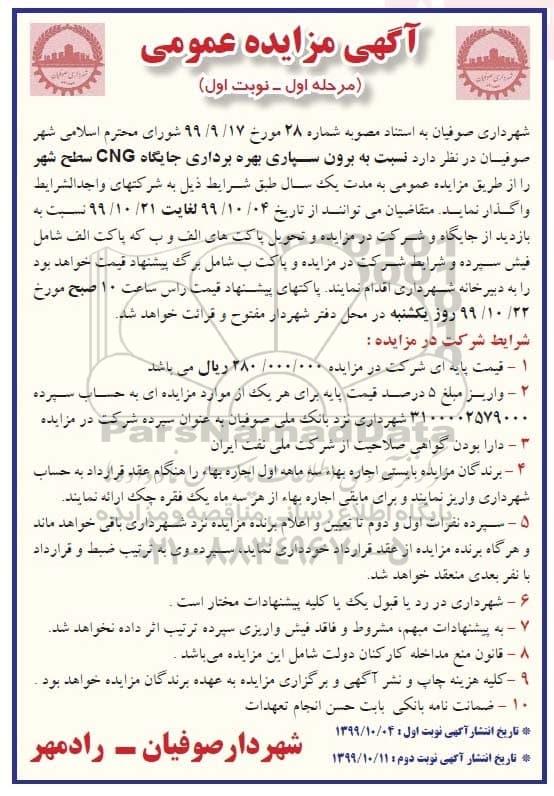 آگهی مزایده عمومی
(مرحله اول - نوبت اول)
شهرداری صوفیان
شهرداری صوفیان
شهرداری صوفیان به استناد مصوبه شماره ۲۸ مورخ ۹۹/۹/۱۷ شورای محترم اسلامی شهر
صوفیـان در نظر دارد نسبت به برون سـپاری بهره برداری جایگاه CNG سطح شهر
را از طریق مزایده عمومی به مدت یک سال طبق شرایط ذیل به شرکتهای واجدالشرایط
واگـذار نمایـد. متقاضیان می تواننـد از تاریخ ۹۹/۱۰/۰۴ لغایت ۹۹/۱۰/۲۱ نسـبت به
بازدید از جایگاه و شـرکت در مزایده و تحویل پاکت های الف و ب که پاکت الف شامل
فیش سـپرده و شرایط شـرکت در مزایده و پاکت ب شامل برگ پیشنهاد قیمت خواهد بود
را به دبیرخانه شـهرداری اقدام نمایند. پاکتهای پیشـنهاد قیمت راس ساعت ۱۰ صبح مورخ
۹۹/۱۰/۲۲ روز یکشنبه در محل دفتر شهردار مفتوح و قرائت خواهد شد.
شرایط شرکت در مزایده :
۱ - قیمت پایه ای شرکت در مزایده ۲۸۰/۰۰۰/۰۰۰ ریال می باشد
۲ - واریـز مبلغ ۵ درصـد قیمت پایه برای هر یک از موارد مزایده ای به حساب سـپرده
۳۱۰۰۰۰۲۵۷۹۰۰۰ شهرداری نزد بانک ملی صوفیان به عنوان سپرده شرکت در مزایده
۳ - دارا بودن گواهی صلاحیت از شرکت ملی نفت ایران
۴ - برندگان مزایده بایستی اجاره بهاء سه ماهه اول اجاره بهاء را هنگام عقد قرارداد به حساب
شهرداری واریز نمایند و برای مابقی اجاره بهاء از هر سه ماه یک فقره چک ارائه نمائند.
۵ - سـپرده نفرات اول و دوم تا تعیین و اعلام برنده مزایده نزد شـهرداری باقی خواهد ماند
و هر گاه برنده مزایده از عقد قرارداد خودداری نماید، سـپرده وی به ترتیب ضبط و قرارداد
با نفر بعدی منعقد خواهد شد.
۶ - شهرداری در رد یا قبول یک یا کلیه پیشنهادات مختار است .
۷ - به پیشنهادات مبهم، مشروط و فاقد فیش واریزی سپرده ترتیب اثر داده نخواهد شد.
۸ - قانون منع مداخله کارکنان دولت شامل این مزایده می‌باشد .
۹ -کلیه هزینه چاپ و نشر آگهی و برگزاری مزایده به عهده برندگان مزایده خواهد بود .
۱۰ - ضمانت نامه بانکی بابت حسن انجام تعهدات
* تاریخ انتشار آگهی نوبت اول : ۱۳۹۹/۱۰/۰۴
* تاریخ انتشار آگهی نوبت دوم : ۱۳۹۹/۱۰/۱۱
شهردار صوفیان - رادمهر
ParsNamadData
پایگاه اطلاع رسانی مناقصه و مزایده
۰۲۱-۸۸۳۴۹۶۷۰-۵